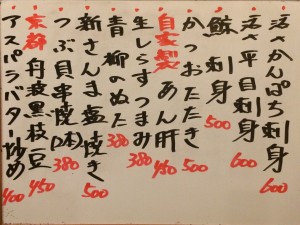 活かんぱち刺身 600
活平目刺身 600
鯨刺身 500
かつおたたき 500
自家製 あん肝 450
生しらすつまみ 380
青柳のぬた 380
新さんま塩焼き 500
つぶ貝串焼(1本) 380
京都 丹波黒枝豆 450
アスパラバター炒め 400